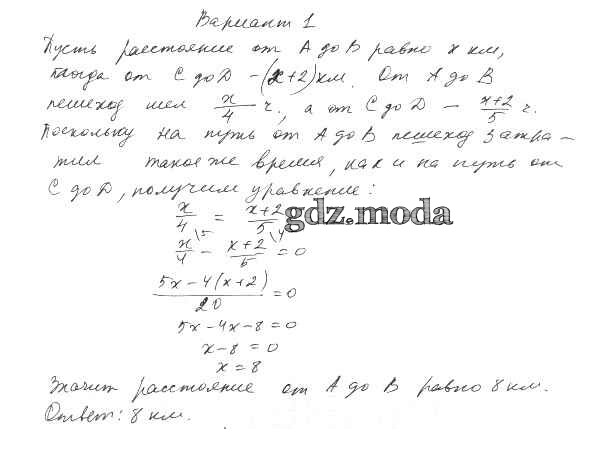 Вариант 1
Пусть расстояние от А до В равно x км,
тогда от С до D - (x+2) км. От А до В
пешеход шел x/4 ч., а от С до D - x+2/5 ч.
Поскольку на путь от А до В пешеход затра-
тил такое же время, как и на путь от
С до D, получим уравнение:
x/4 = x+2/5
gdz.moda
x/4 \5 - x+2/5 \4 = 0
5x-4(x+2)/20 = 0
5x-4x-8=0
x-8 = 0
x = 8
Значит расстояние от А до В равно 8 км.
Ответ: 8 км.